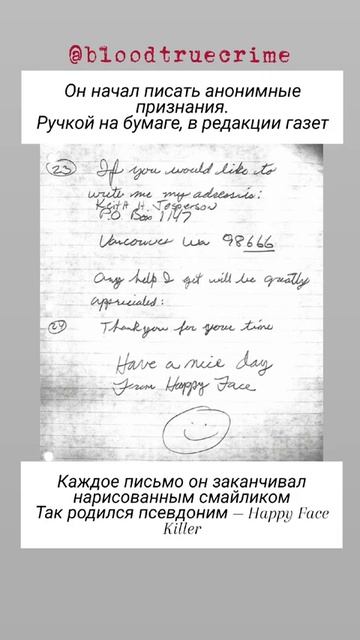 @bloodtruecrime
Он начал писать анонимные
признания.
Ручкой на бумаге, в редакции газет
23 If you would like to
write me my adressis:
Keith H. Jesperson
P.O Box 1147
Vancouver wa 98666
Any help I get will be greatly
appreciated:
24 Thankyou for your time
Have a nice day
From Happy Face
Каждое письмо он заканчивал
нарисованным смайликом
Так родился псевдоним – Happy Face
Killer